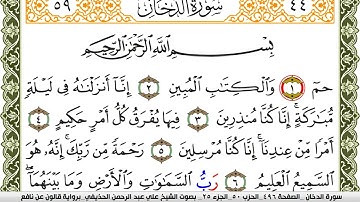 ٤٤ سُورَةُ الدُّخَانِ ٥٩
بِسْمِ اللَّهِ الرَّحْمَٰنِ الرَّحِيمِ
حمٓ ١ وَالْكِتَابِ الْمُبِينِ ٢ إِنَّا أَنزَلْنَاهُ فِي لَيْلَةٍ
مُّبَارَكَةٍ إِنَّا كُنَّا مُنذِرِينَ ٣ فِيهَا يُفْرَقُ كُلُّ أَمْرٍ حَكِيمٍ ٤
أَمْرًا مِّنْ عِندِنَا إِنَّا كُنَّا مُرْسِلِينَ ٥ رَحْمَةً مِّن رَّبِّكَ إِنَّهُ هُوَ
السَّمِيعُ الْعَلِيمُ ٦ رَبُّ السَّمَٰوَٰتِ وَالْأَرْضِ وَمَا بَيْنَهُمَا
سورة الدخان .. الصفحة ٤٩٦ .. الحزب ٥٠ .. الجزء ٢٥ .. بصوت الشيخ علي عبد الرحمن الحذيفي .. برواية قالون عن نافع